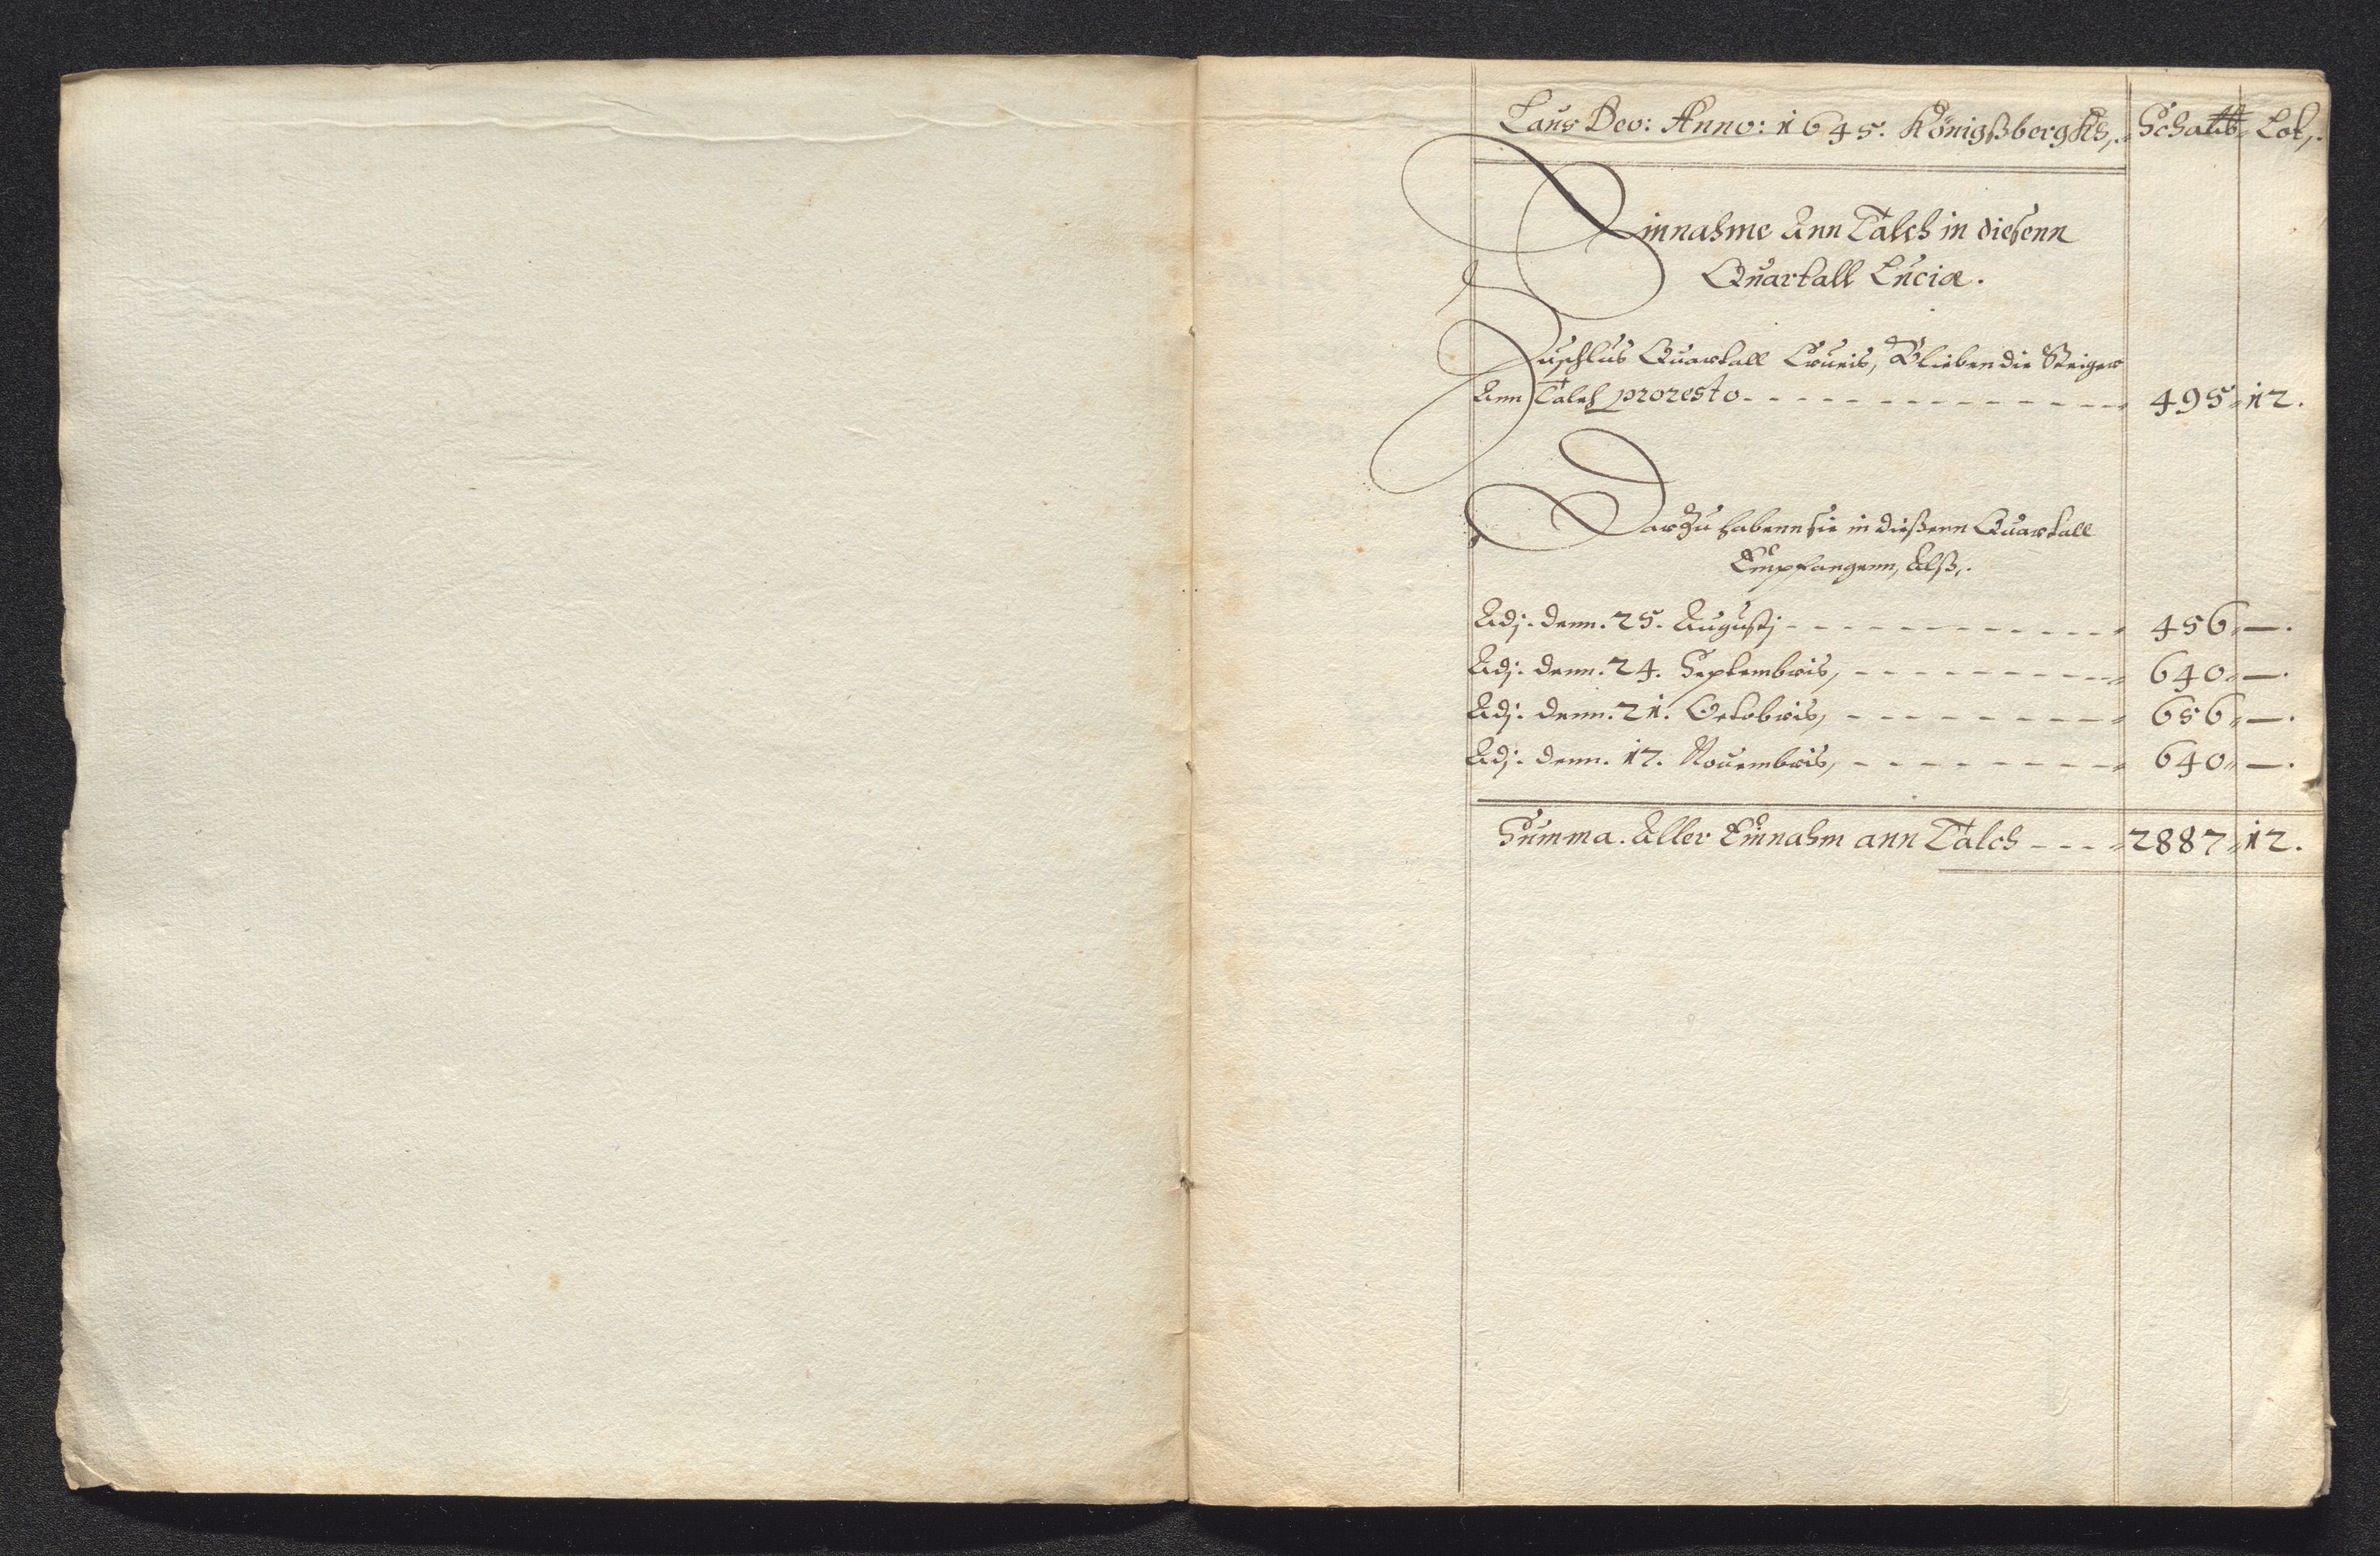 Laus Deo: Anno: 1645. Königßbergks,. Schalt⸗ Lot,.
Einnahme Ann Talch in dießenn
Quartall Luciæ.
Zuschlus Quartall Crucis, Blieben die Steiger
Ann Talch pro resto - - - - 495⸗ 12.
Darzu habenn sie in dießenn Quartall
Empfangenn, Alß,.
Adj. denn. 25. Augustj - - - - 456⸗ —.
Adj. denn. 24. Septembris, - - - - 640⸗ —.
Adj. denn. 21. Octobris, - - - - 656⸗ —.
Adj. denn. 17. Nouembris, - - - - 640⸗ —.
Summa. Aller Einnahm ann Talch - - - 2887⸗ 12.